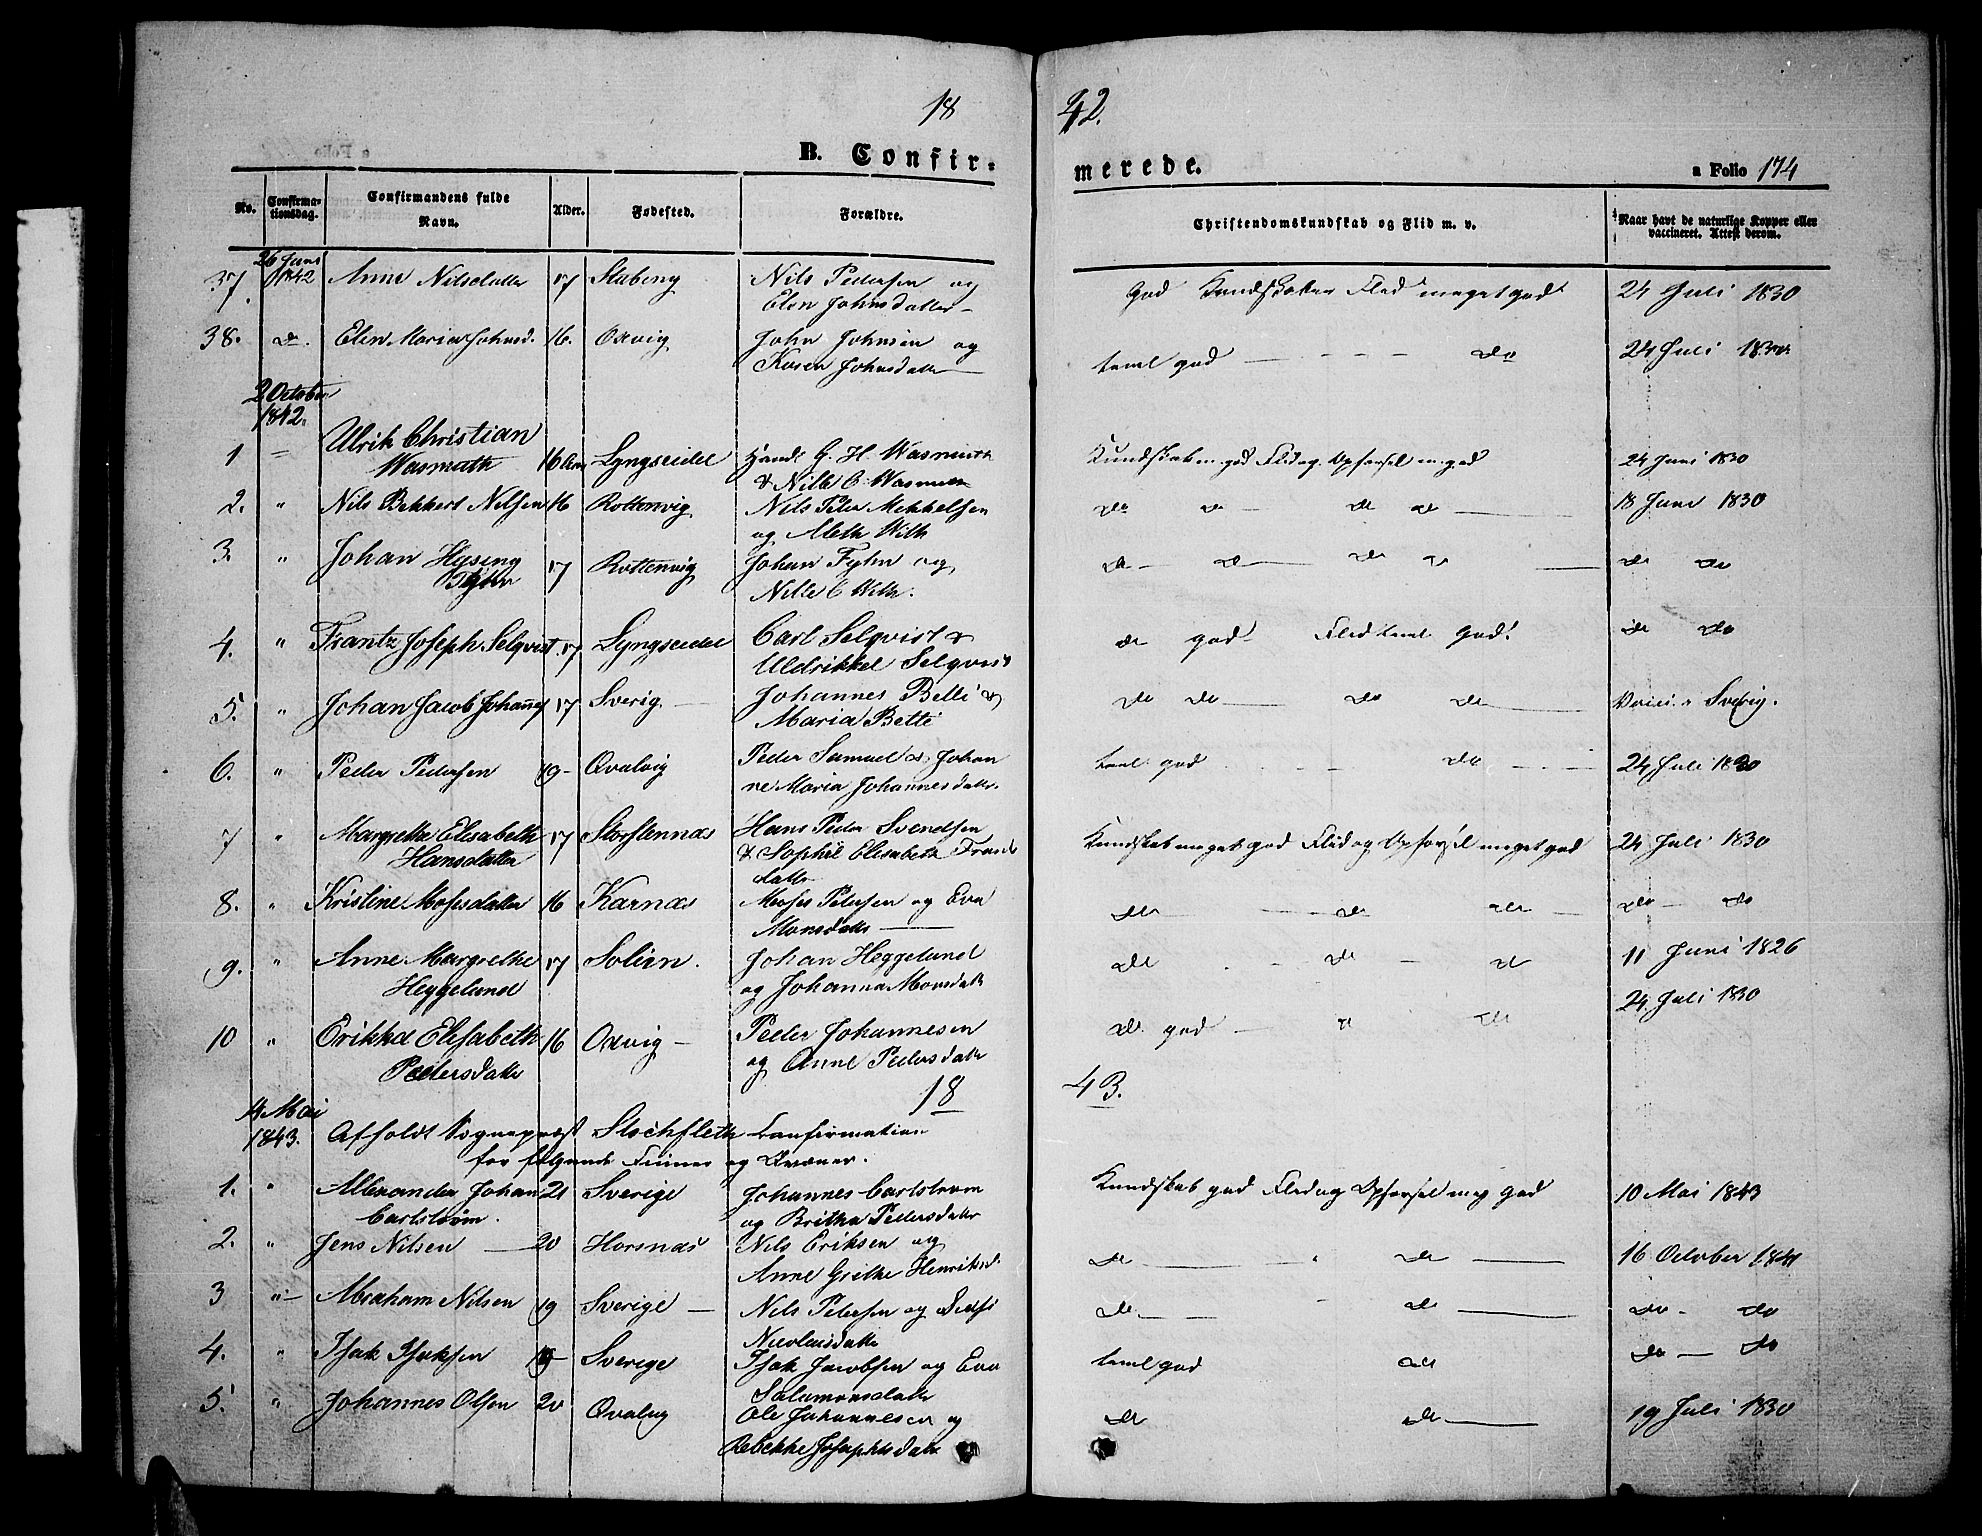 18 42.
B. Confir- merede. a Folio 174
No. Confirma-tionsdag. Confirmandens fulde Navn. Alder. Fødested. Forældre. Christendomskundskab og Flid m. v. Naar havt de naturlige Kopper eller vaccineret. Attest derom.
26 Juni
37. 1842 Anne Nilsdatter 17 Nils Pedersen og God Kundskaber Flid meget god 24 Juli 1830
Elen Johnsdatter
38. do. Elen Maria Johnsd. 16. Oxvig John Johnsen og teml god - - - - do 24 Juli 1830
Karen Johnsdatter
2 October
1842.
1 Ulrik Christian
Wasmuth 16 Lyngseidet Handl G. H. Wasmuth Kundskab m. god Flid og Opførsel m. god 24 Juni 1830
& Nille C. Wasmuth
2. " Nils Bekkert Nilsen 16 Rottenvig Nils Peter Mikkelsen do do do do 18 Juni 1830
og Aleth With
3. " Johan Hysing
Fyhn 17 Rottenvig Johan Fyhn og do do do do do do
Nille C With.
4. " Frantz Joseph Selqvist 17 Lyngseidet Carl Selqvist & do god Flid teml god do do
Uldrikke Selqvist
5. " Johan Jacob 17 Sverig Johannes Betti & do do do do Sverig.
Maria Betti
6. " Peder Pedersen 19 Qvalvig Peder Samuel & Johan teml god do 24 Juli 1830
ne Maria Johannesdatr.
7 " Margrethe Elisabeth 17 Storslennæs Hans Peder Svendsen Kundskab meget god Flid og Opførsel meget god 24 Juli 1830
Hansdatter & Sophie Elisabeth Frands
datter
8. " Kristine Mosesdatter 16 Karnæs Moses Petersen og Eva do do do do do
Monsdatr
9. " Anne Margrethe 17 Johan Heggelund do do do 11 Juni 1826
Heggelund og Johanna Monsdatr
10 " Erikka Elisabeth 16 Oxvig Peder Johannesen do god " do 24 Juli 1830
Pedersdatr og Anne Pedersdatr
18 43.
4 Mai
1843. Afholdt Sognepræst Stockfleth Confirmation
for følgende Finner og Qvæner.
1. " Alexander Johan 21 Sverige Johannes Carlstrøm Kundskab god Flid og Opførsel meg god 10 Mai 1843
Carlstrøm. og Britha Pedersdatr
2. " Jens Nilsen 20 Horsnæs Nils Eriksen og do " do 16 October 1841
Anne Grethe Henriksd.
3 " Abraham Nilsen 19 Sverige Nils Petersen og do do do do
Nicolaisdatr
4. " Isak Isaksen 19 Sverige Isak Jacobsen og Eva teml god do do do
Salamonsdatr
5. " Johannes Olsen 20 Qvalvig Ole Johannesen og do do 19 Juli 1830
Rebekke Josephsdatr